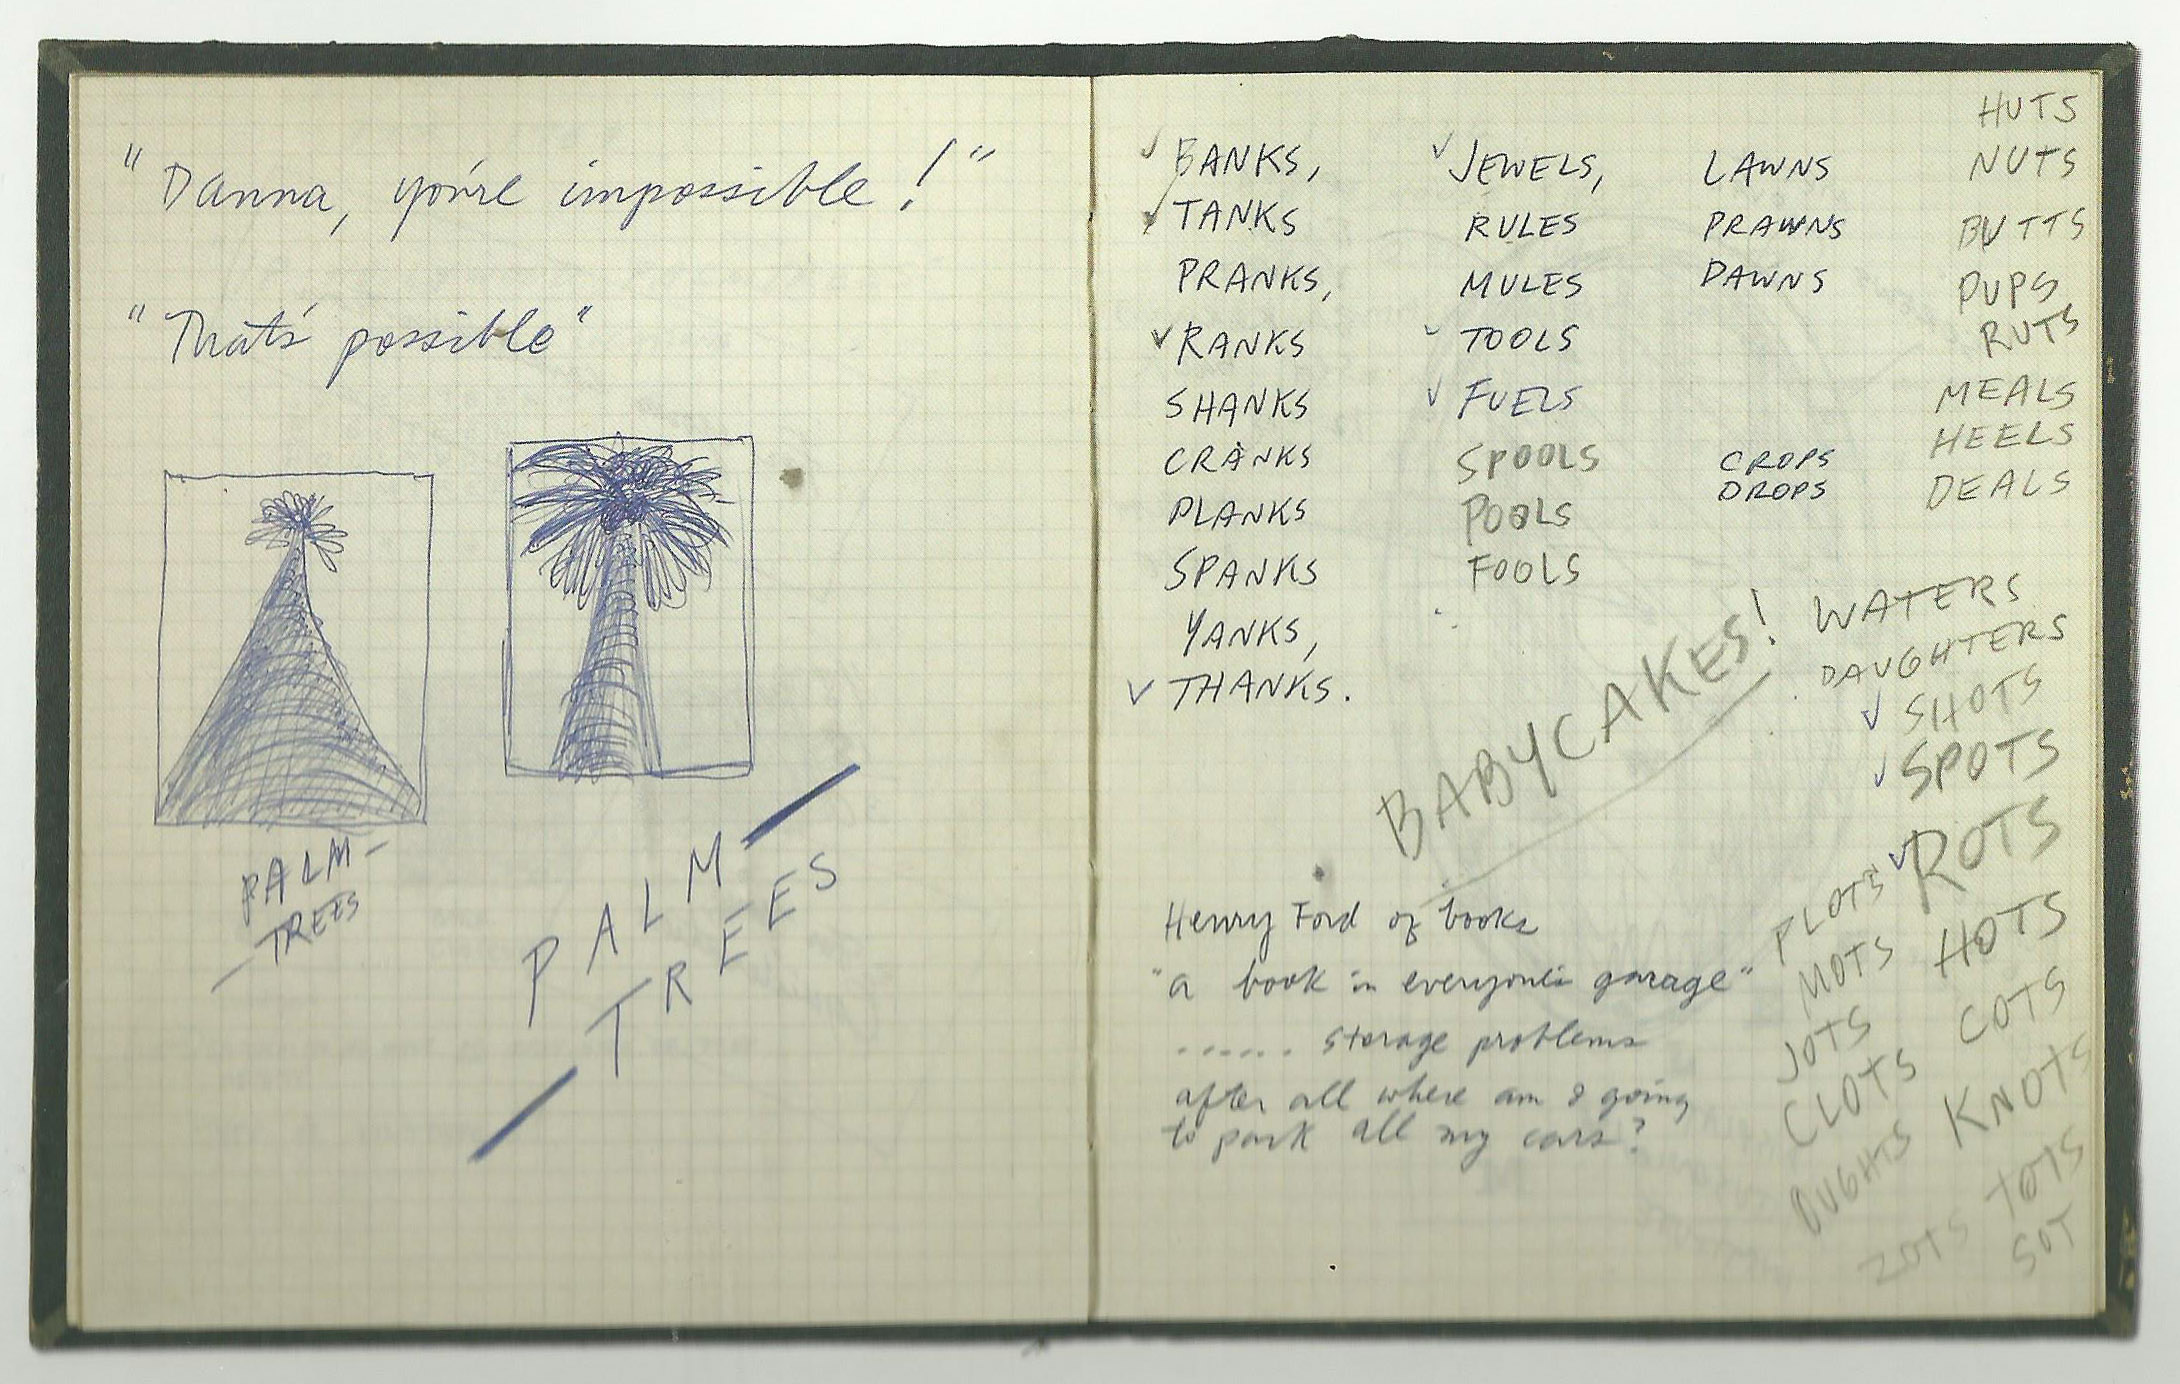 "Danna, you're impossible!"
"That's possible"
PALM-
-TREES
PALM-
-TREES
BANKS,
TANKS
PRANKS,
RANKS
SHANKS
CRANKS
PLANKS
SPANKS
YANKS,
THANKS.
JEWELS,
RULES
MULES
TOOLS
FUELS
SPOOLS
POOLS
FOOLS
LAWNS
PRAWNS
DAWNS
CROPS
DROPS
HUTS
NUTS
BUTTS
PUPS
RUTS
MEALS
HEELS
DEALS
BABYCAKES!
WATERS
DAUGHTERS
SHOTS
SPOTS
ROTS
HOTS
COTS
KNOTS
TOTS
SOT
PLOTS
MOTS
JOTS
CLOTS
OUGHTS
ZOTS
Henry Ford of books
"a book in everyone's garage"
...... storage problems
after all where am I going
to park all my cars?